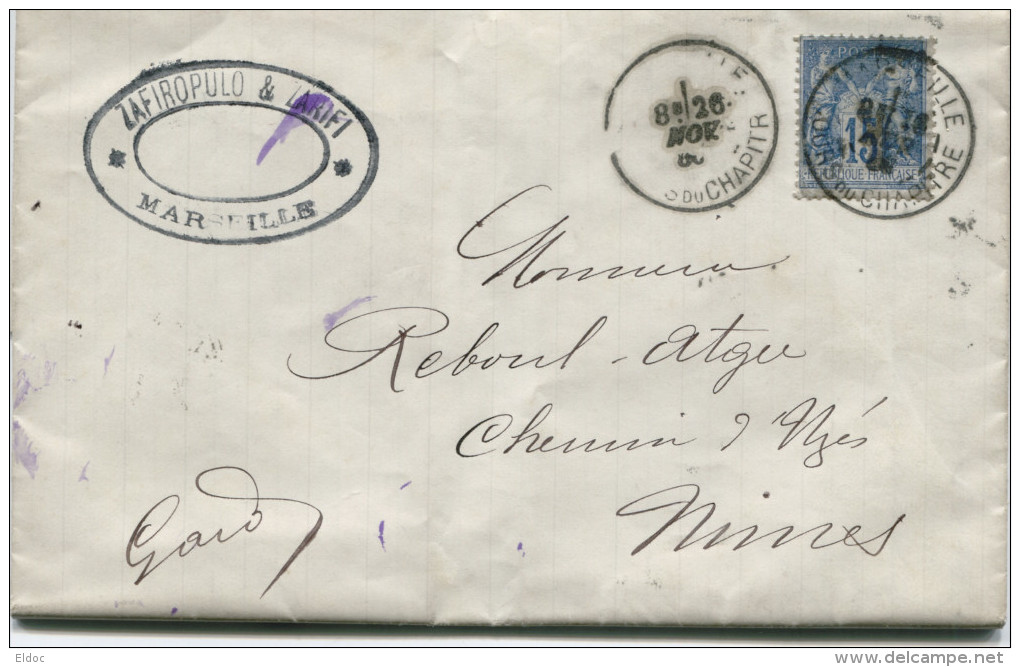 ZAFIROPULO & ZARIFI
MARSEILLE
8E 26
NOV
DU CHAPITR
15
REPUBLIQUE FRANÇAISE
DU CHAPITRE
Monsieur
Reboul-Atger
Chemin d'Uzés
Nimes
Gard
Eldoc
delcampe.net